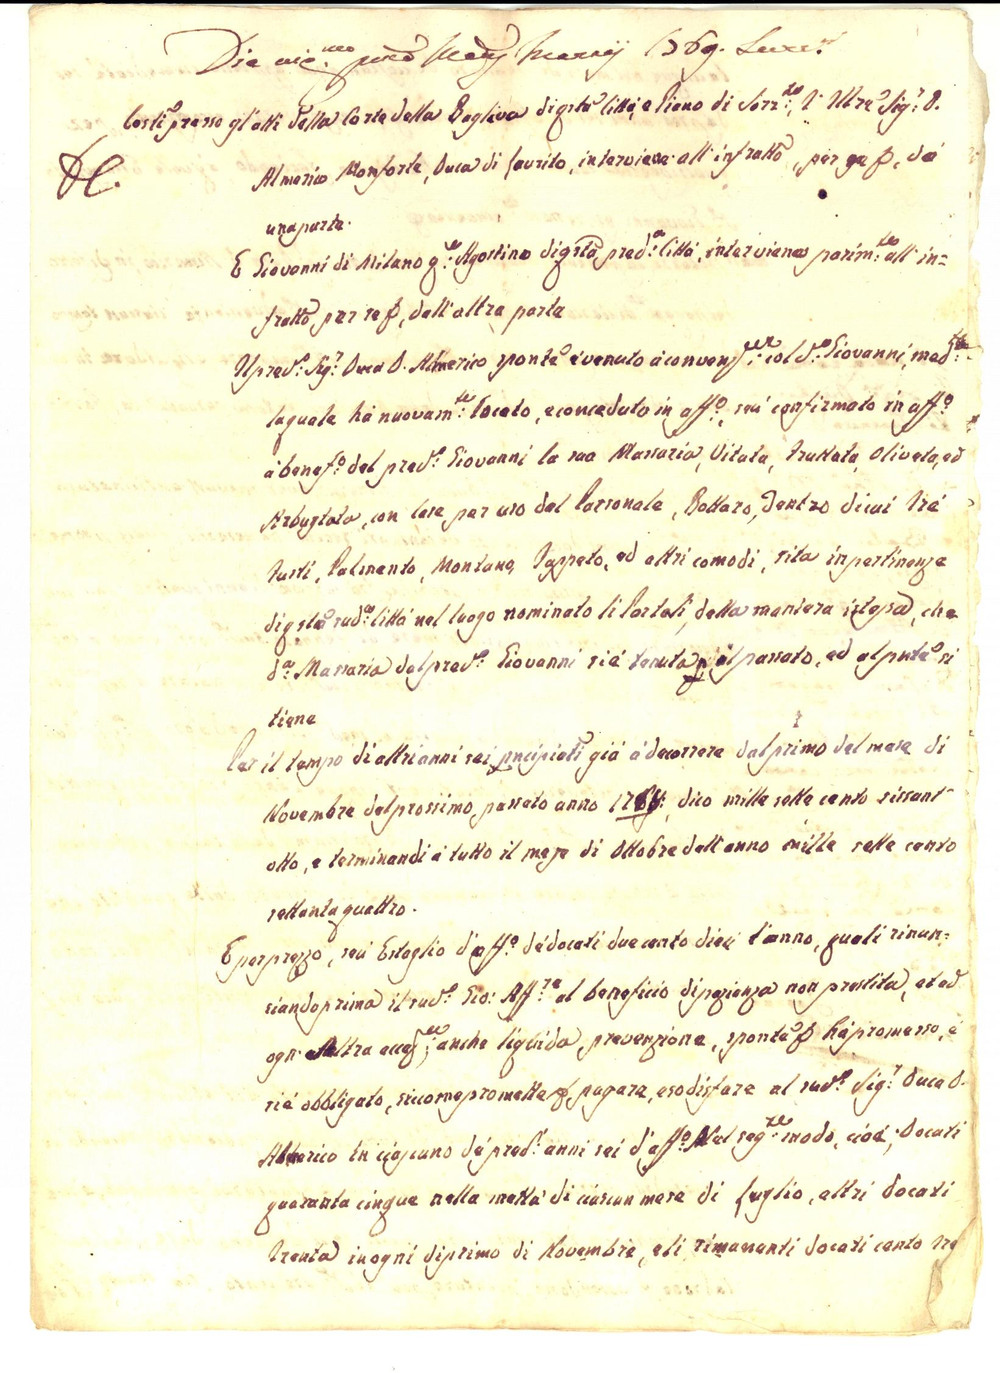 Die vic.mo Mensis Marzij 1769. Surr.ti
Costi presso gl'atti della Corte della Bagliva di q.sta Città, e Piano di Sorr.to, l'Ill.re Sig.r D.
Almerico Monforte, Duca di Laurito, interviene all'infratto, per se p, da
una parte.
E Giovanni di Milano q.m Agostino di q.sta pred.a Città, interviene parim.te all'in=
fratto per se p, dall'altra parte
Il pred.o Sig.r Duca D. Almerico spont.e è venuto à conven.ne col d.o Giovanni, med.te
la quale hà nuovam.te locato, e conceduto in aff.o, seu confirmato in aff.o
à benef.o del pred.o Giovanni la sua Massaria, Vitata, fruttata, oliveta, ed
Arbustata, con Case per uso del Parsonale, Bottaro, dentro di cui trè
fusti, Palmento, Montano, Trappeto, ed altri comodi, sita in pertinenze
di q.sta sud.a Città nel luogo nominato li Portali, della maniera istessa, che
d.a Massaria dal pred.o Giovanni si è tenuta p il passato, ed al pnte si
tiene
Per il tempo di altri anni sei pncipiati già à decorrere dal primo del mese di
Novembre del prossimo passato anno 1768: dico mille sette cento sissant'
otto, e terminandi à tutto il mese di Ottobre dell'anno mille sette cento
settanta quattro.
E per prezzo, seu Estaglio d'aff.o de docati duecento dieci l'anno, quali rinun=
ciando prima il sud.o Gio: Aff.re al beneficio di presenza non prestita, et ad
ogn'altra ecce.ne, anche liquida, prevenzione, spont.e p hà promesso, e
si è obbligato, siccome promette p pagare, e sodisfare al sud.o Sig.r Duca D.
Almerico in ciascuno de pred.i anni sei d'aff.o Nel seg.te modo, cioè; Docati
quaranta cinque nella metà di ciascun mese di Luglio, altri docati
trenta in ogni dì primo di Novembre, e li rimanenti docati cento tre